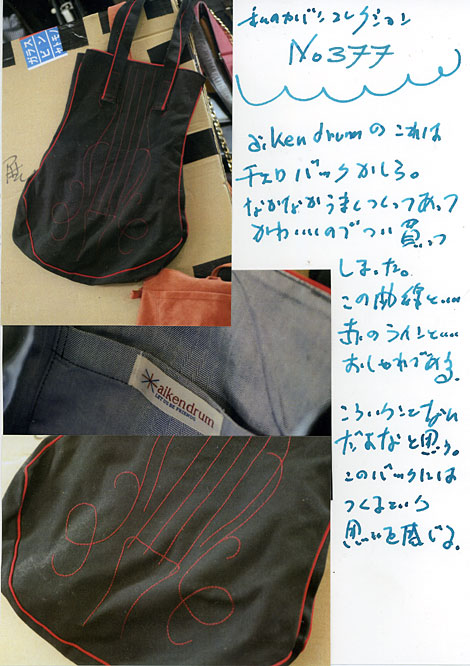 私のカバンコレクション
No 377
aikendrumの これは
チェロバックかしら。
なかなかうまくつくってあって
かわいいので つい 買って
しまった。
この曲線と…
赤のラインと…
おしゃれである。
だよなと思う。
このバックには
つくるという
思いを感じる。
ガラス
ビン
aikendrum
LET US BE FRIENDS